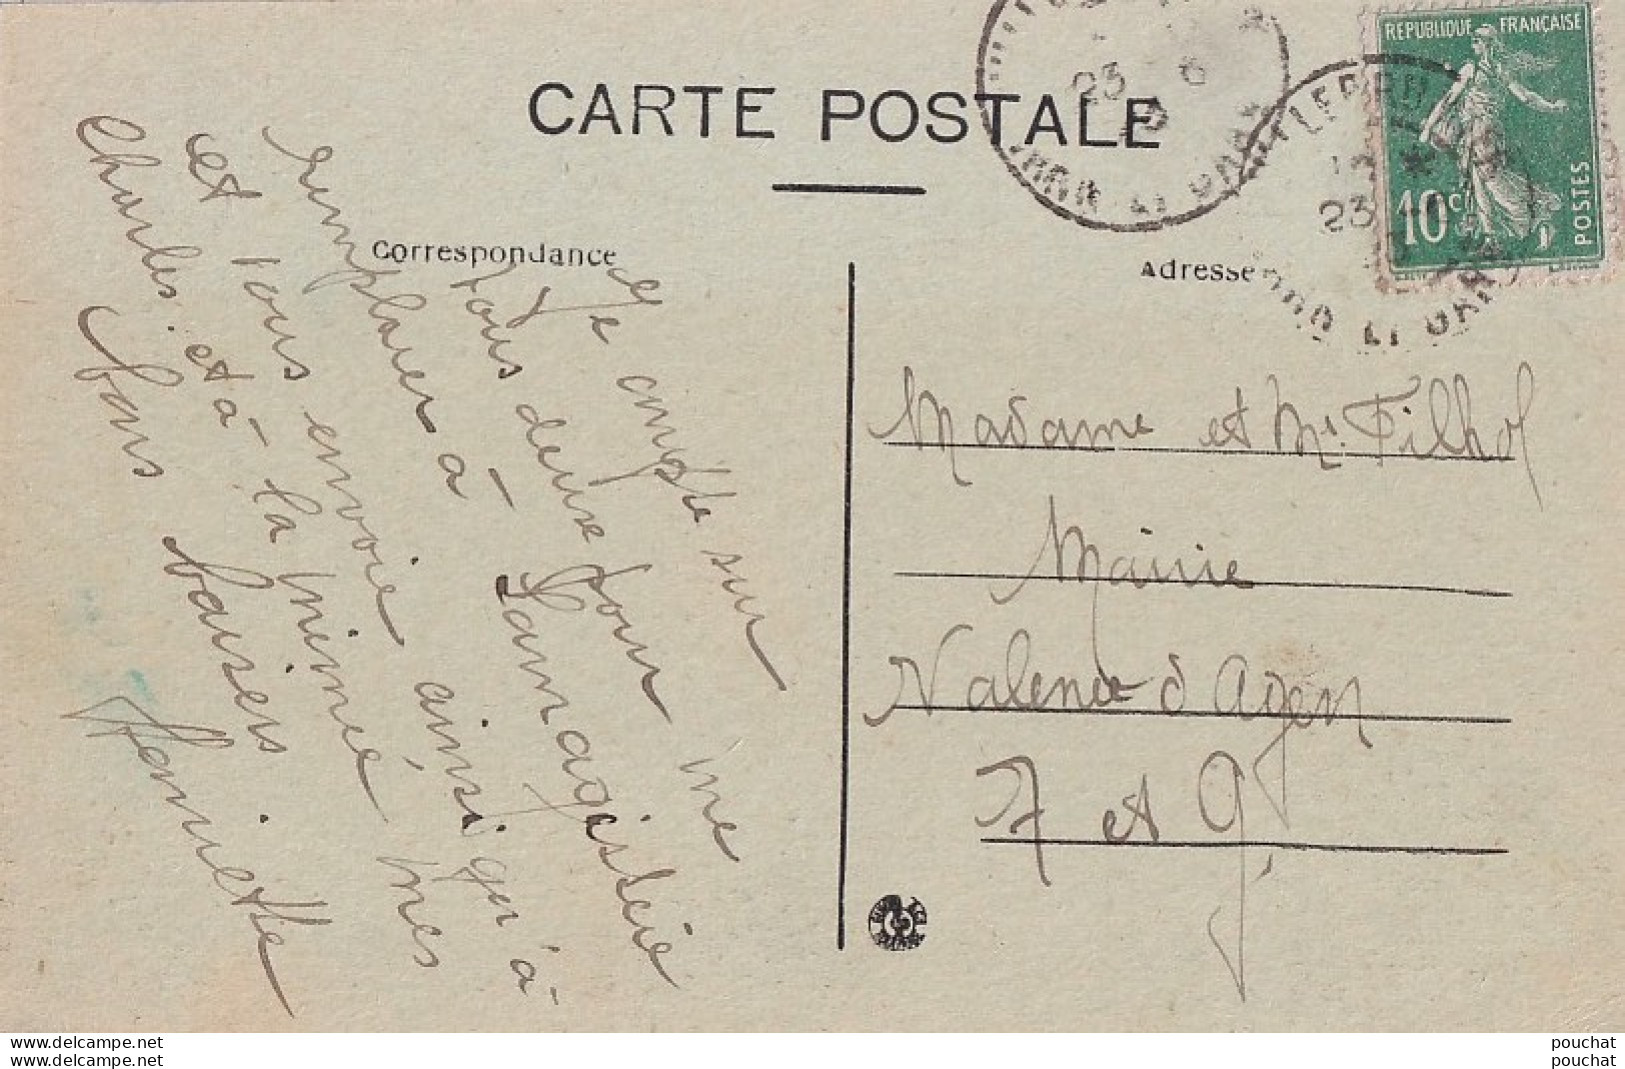 CARTE POSTALE
Correspondance
Adresse
REPUBLIQUE FRANÇAISE
10 c
POSTES
23 6
23
TARN ET GARNE
Je compte sur
vous deux pour me
remplacer à Lamagistère
et vous envoie ainsi qu'à
Charles et à la mime mes
bons baisers
Henriette
Madame et Mr. Filhol
Mairie
Valence d'Agen
T et G.
www.delcampe.net
www.delcampe.net
pouchat
pouchat